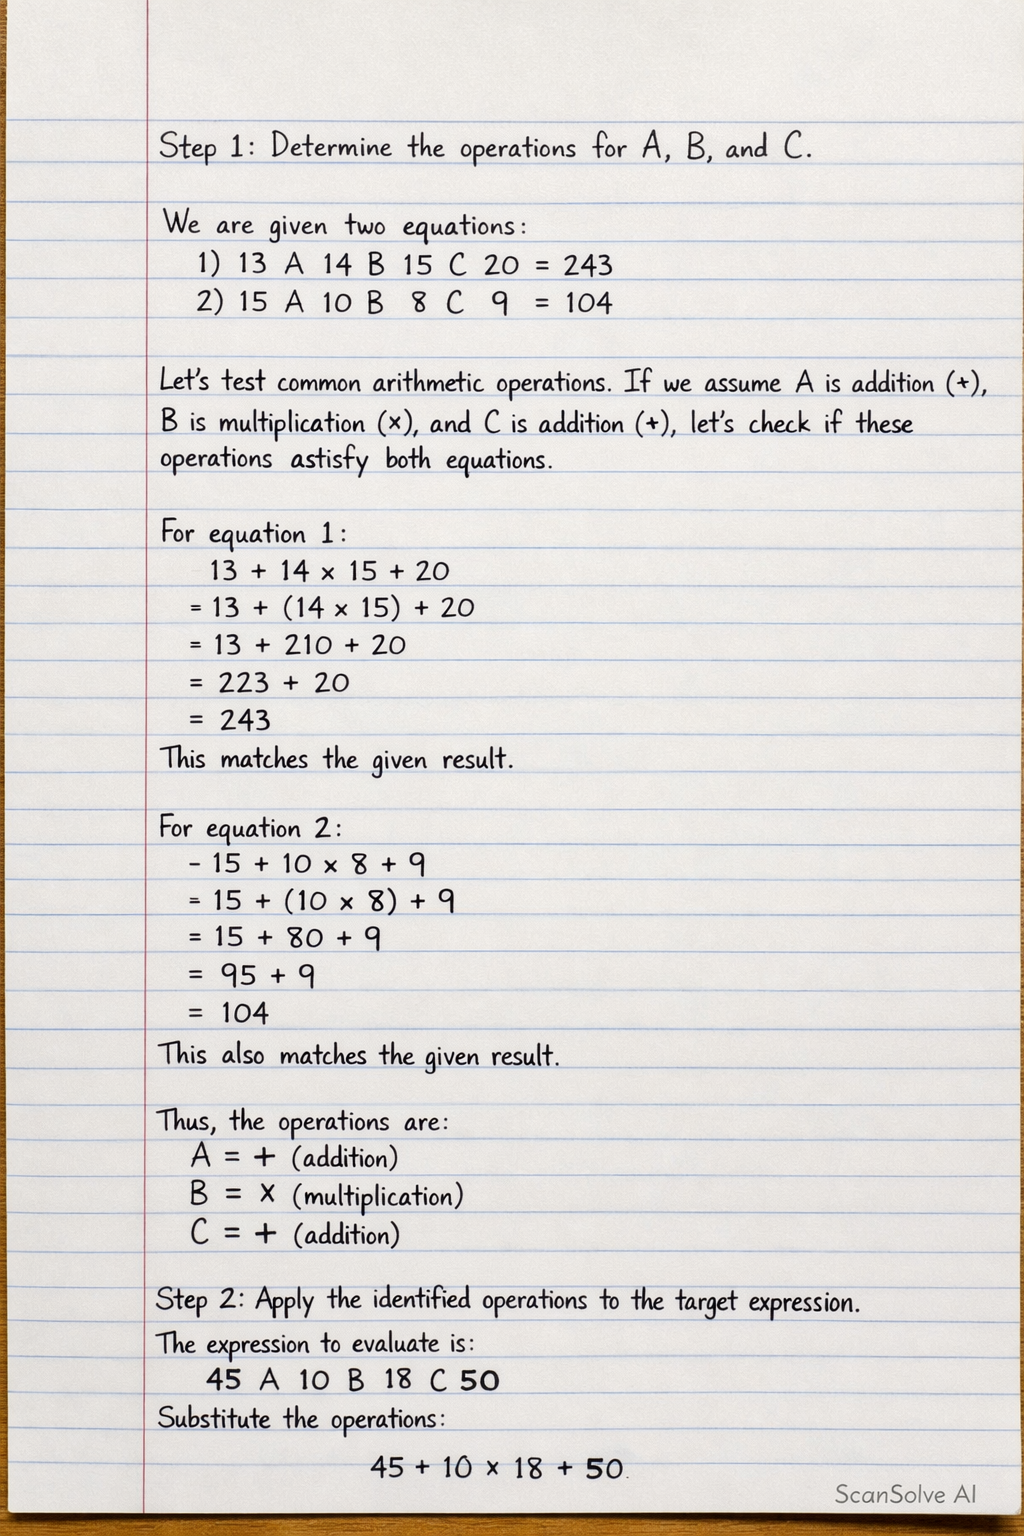 Step 1: Determine the operations for A, B, and C.
We are given two equations:
1) 13 A 14 B 15 C 20 = 243
2) 15 A 10 B 8 C 9 = 104
Let's test common arithmetic operations. If we assume A is addition (+),
B is multiplication (×), and C is addition (+), let's check if these
operations astisfy both equations.
For equation 1:
13 + 14 × 15 + 20
= 13 + (14 × 15) + 20
= 13 + 210 + 20
= 223 + 20
= 243
This matches the given result.
For equation 2:
- 15 + 10 × 8 + 9
= 15 + (10 × 8) + 9
= 15 + 80 + 9
= 95 + 9
= 104
This also matches the given result.
Thus, the operations are:
A = + (addition)
B = × (multiplication)
C = + (addition)
Step 2: Apply the identified operations to the target expression.
The expression to evaluate is:
45 A 10 B 18 C 50
Substitute the operations:
45 + 10 × 18 + 50.
ScanSolve AI